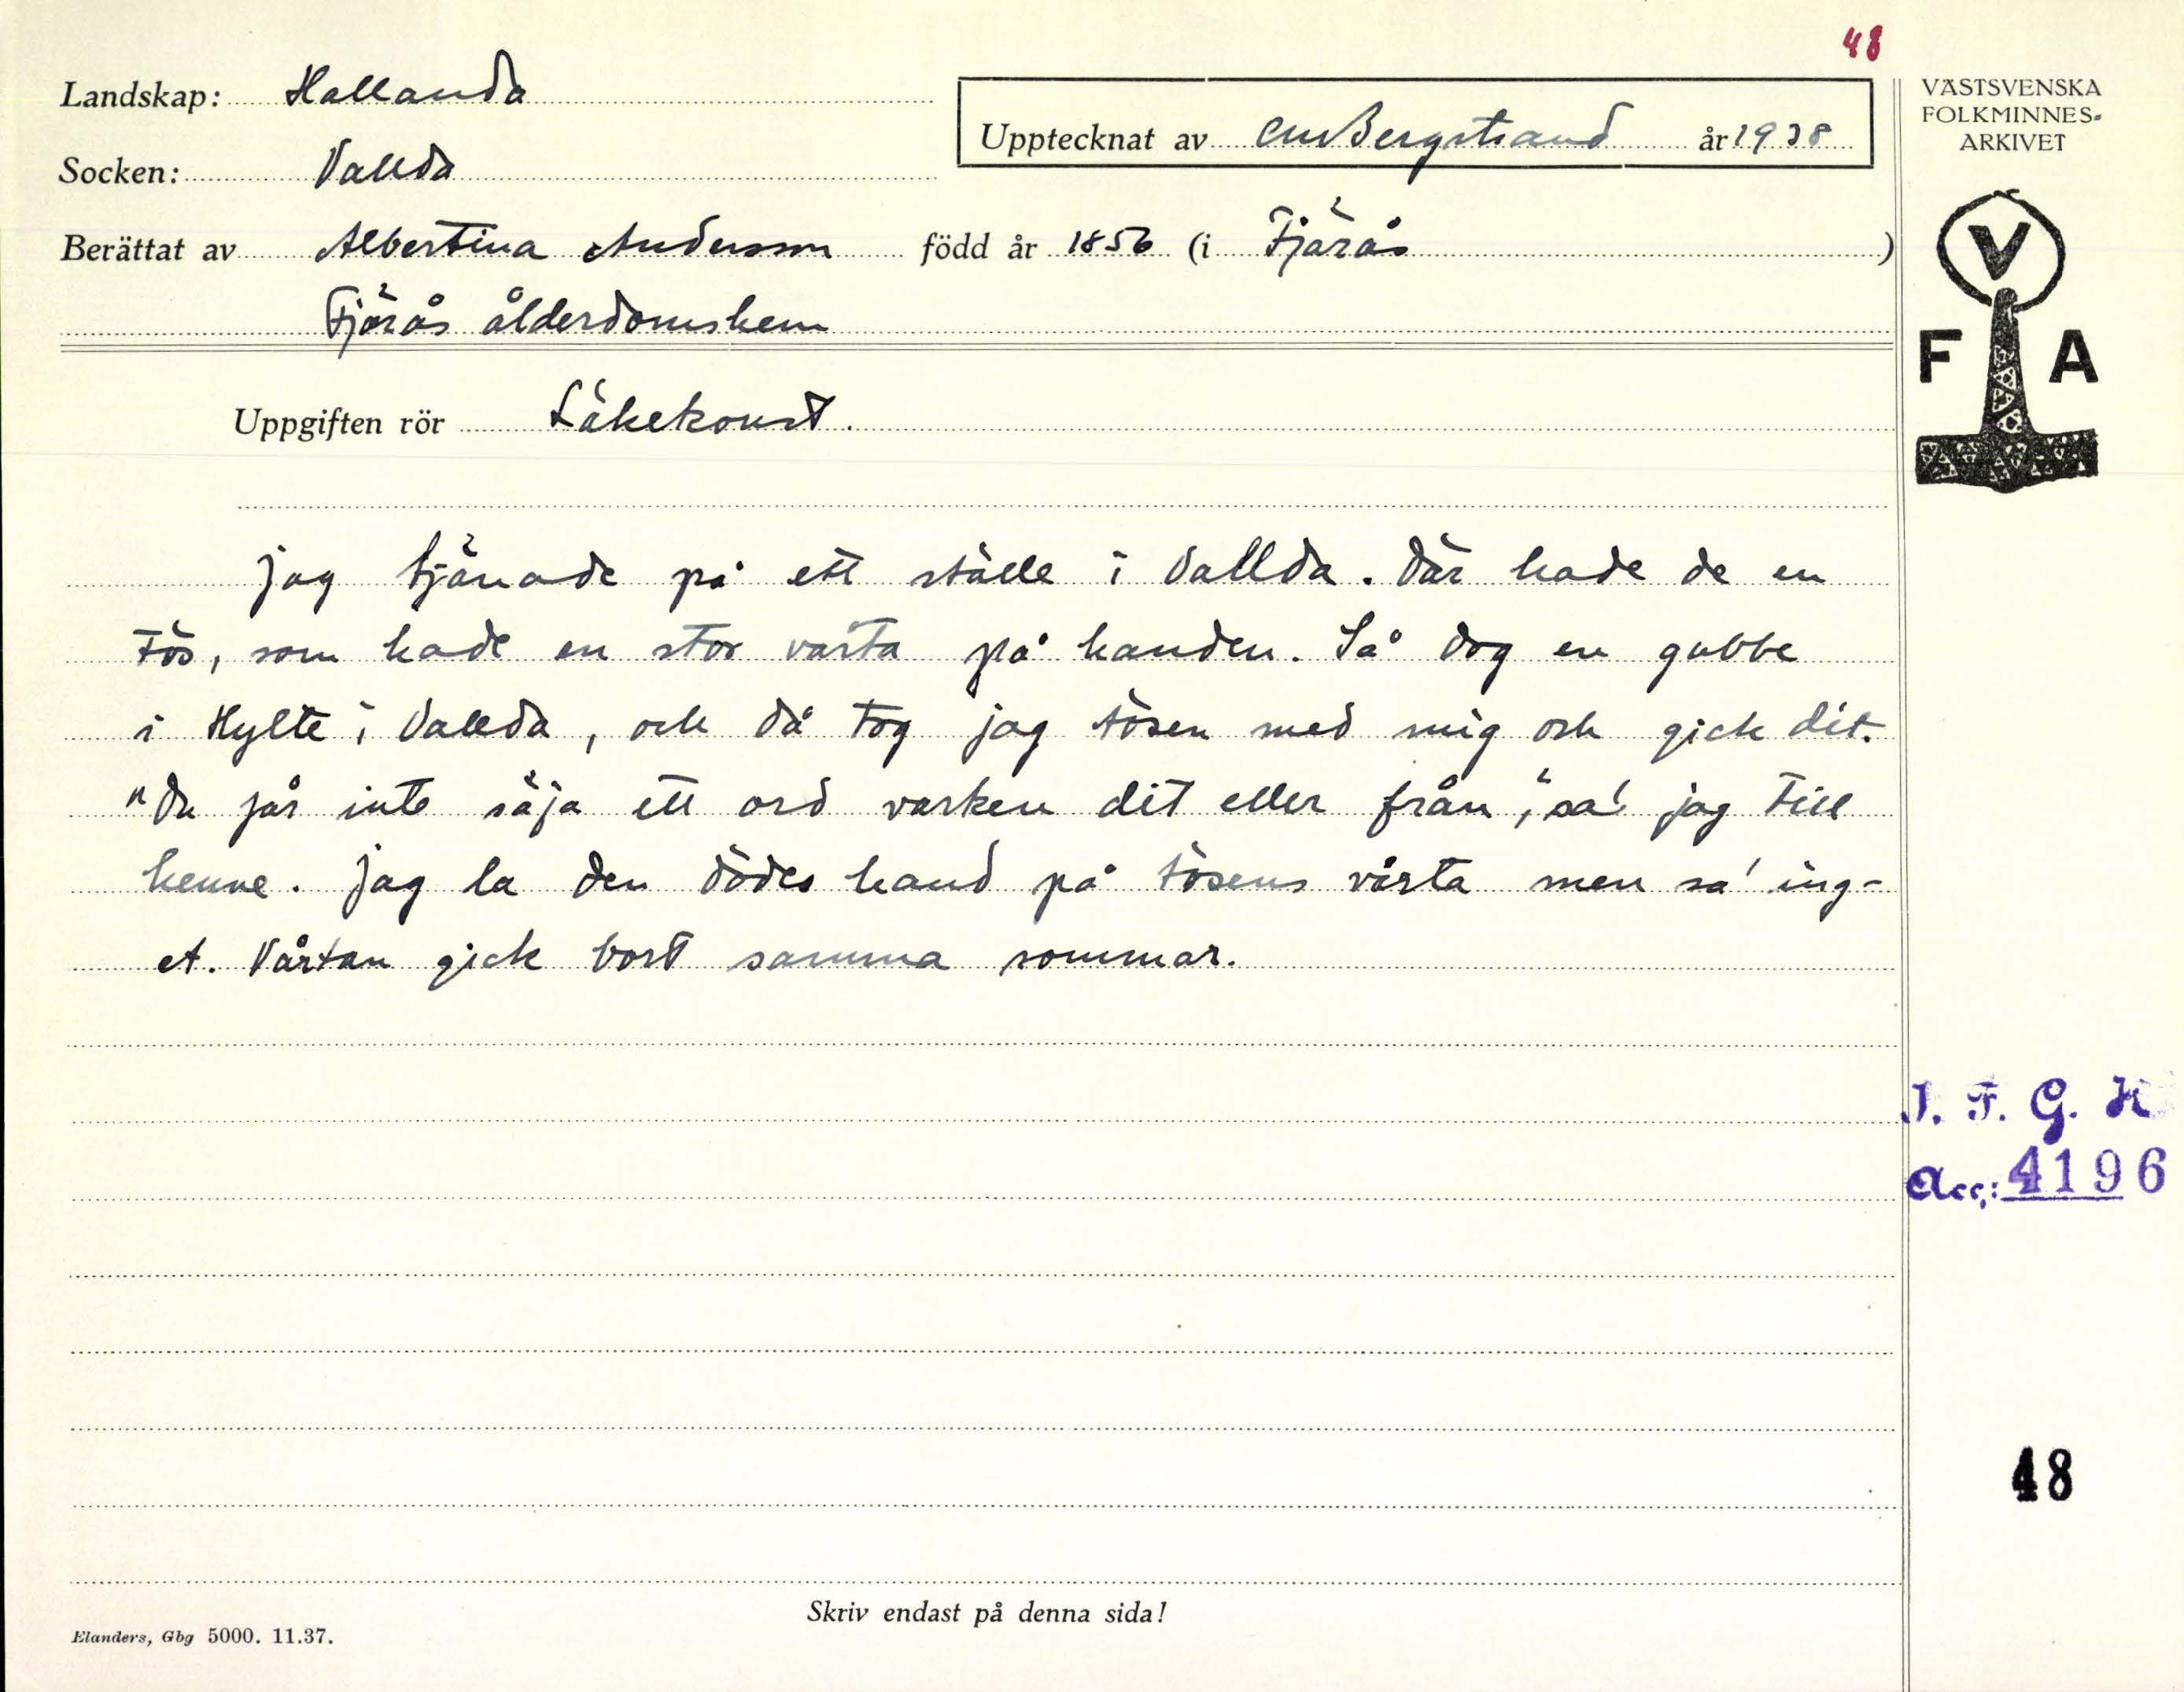 48
Landskap: Hallanda
Socken: Vallda
Upptecknat av CMBergstrand år 1938
Berättat av Albertina Andersson född år 1856 (i Fjärås)
Fjärås ålderdomshem
Uppgiften rör Läkekonst.
Jag tjänade på ett ställe i Vallda. Där hade de en
tös, som hade en stor vårta på handen. Så dog en gubbe
i Hylte i Vallda, och då tog jag tösen med mig och gick dit.
"Du får inte säja ett ord varken dit eller från", sa' jag till
henne. Jag la den dödes hand på tösens vårta men sa' ing-
et. Vårtan gick bort samma sommar.
Skriv endast på denna sida!
Elanders, Gbg 5000. 11.37.
VÄSTSVENSKA
FOLKMINNES-
ARKIVET
V
F A
I. F. G. H
Acc: 4196
48